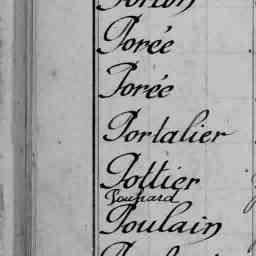 Porée
Porée
Portalier
Pottier
Poulain